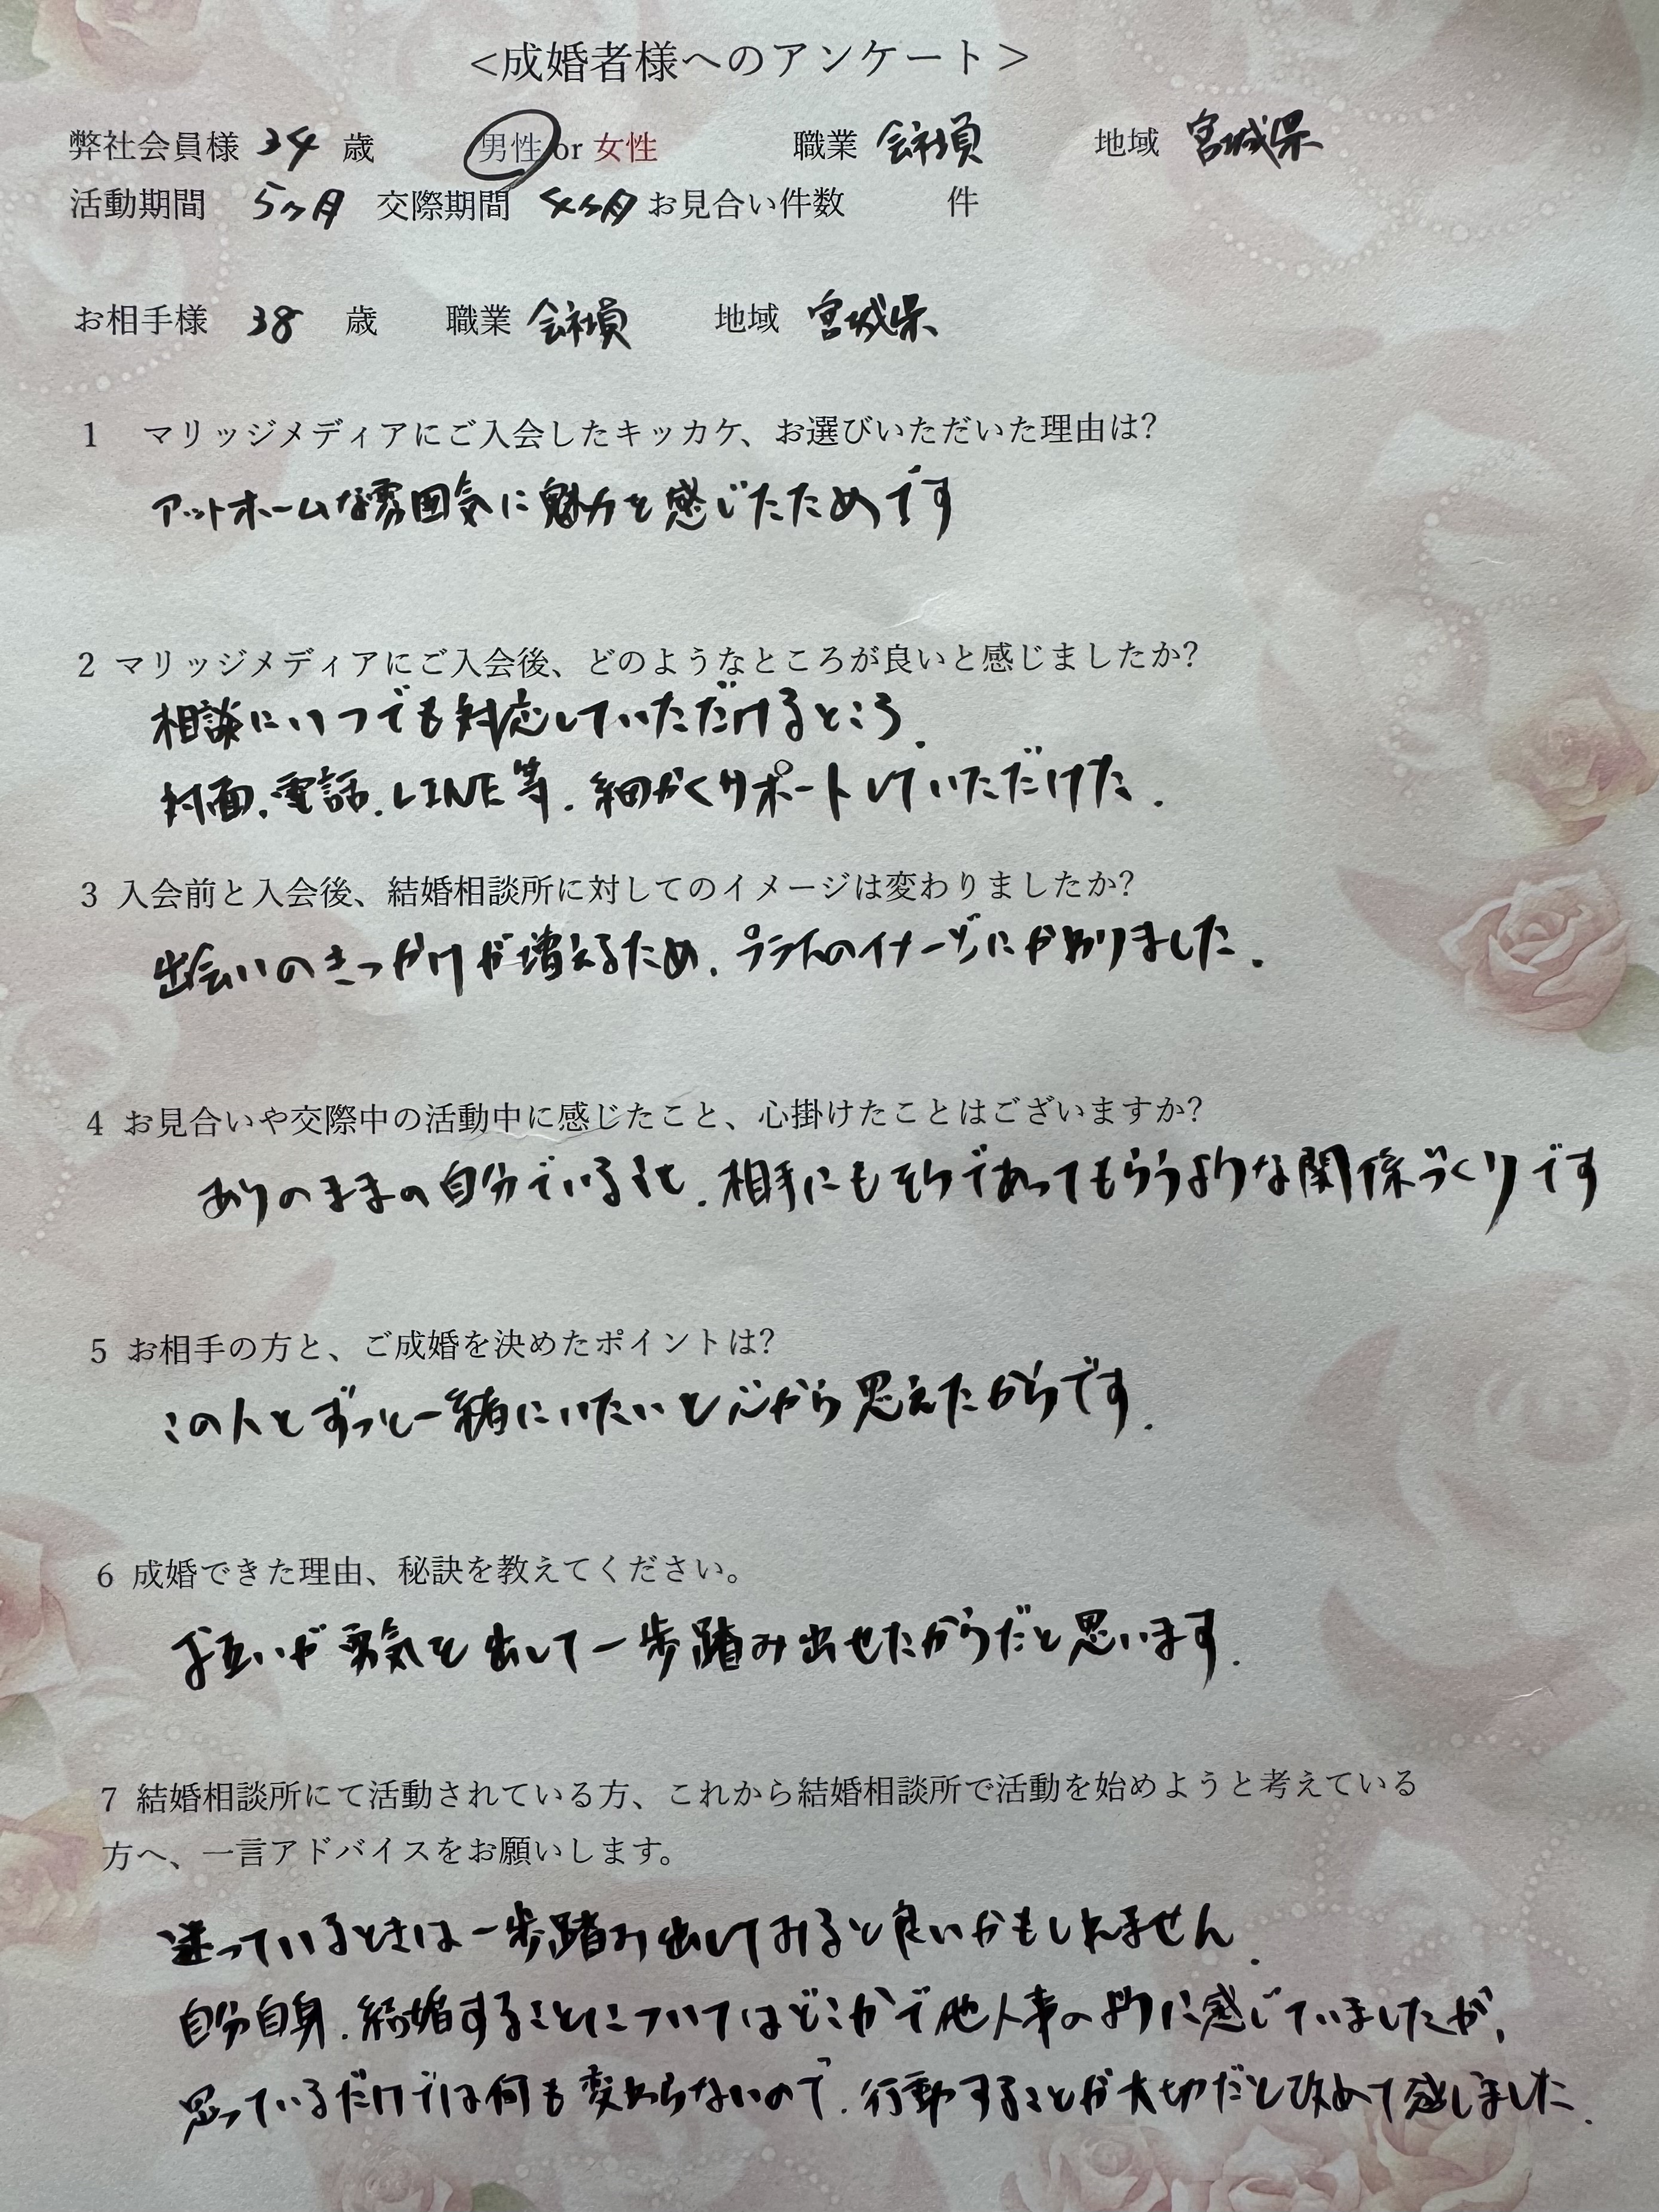 <成婚者様へのアンケート>
弊社会員様 34 歳 男性 or 女性 職業 会社員 地域 宮城県
活動期間 5ヶ月 交際期間 4ヶ月 お見合い件数 件
お相手様 38 歳 職業 会社員 地域 宮城県
1 マリッジメディアにご入会したキッカケ、お選びいただいた理由は?
アットホームな雰囲気に魅力を感じたためです
2 マリッジメディアにご入会後、どのようなところが良いと感じましたか?
相談にいつでも対応していただけるところ、
対面、電話、LINE等、細かくサポートしていただけた。
3 入会前と入会後、結婚相談所に対してのイメージは変わりましたか?
出会いのきっかけが増えるため、プラスのイメージにかわりました。
4 お見合いや交際中の活動中に感じたこと、心掛けたことはございますか?
ありのままの自分でいること、相手にもそうであってもらうような関係づくりです
5 お相手の方と、ご成婚を決めたポイントは?
この人とずっと一緒にいたいと心から思えたからです。
6 成婚できた理由、秘訣を教えてください。
お互いが勇気を出して一歩踏み出せたからだと思います。
7 結婚相談所にて活動されている方、これから結婚相談所で活動を始めようと考えている
方へ、一言アドバイスをお願いします。
迷っているときは一歩踏み出してみると良いかもしれません。
自分自身、結婚することについてはどこかで他人事のように感じていましたが、
思っているだけでは何も変わらないので、行動することが大切だと改めて感じました。